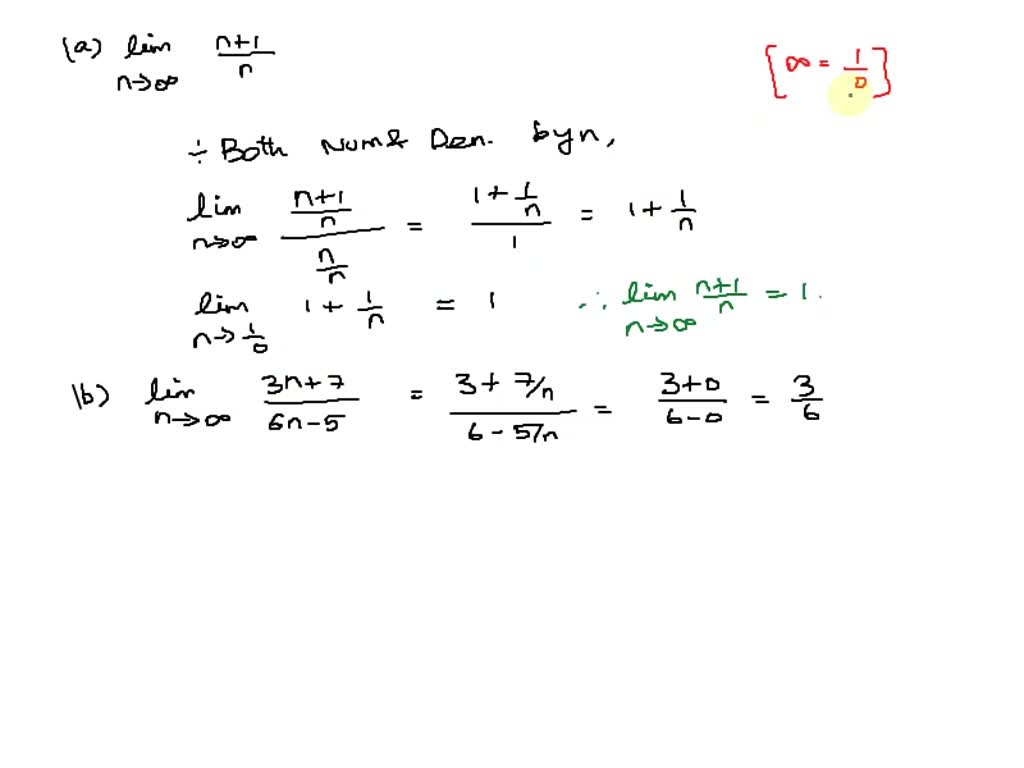 (a) lim n→∞ (n+1)/n
[∞ = 1/0]
÷ Both Num & Den. by n,
lim n→∞ ((n+1)/n)/(n/n) = (1 + 1/n)/1 = 1 + 1/n
lim n→1/0 1 + 1/n = 1 ∴ lim n→∞ (n+1)/n = 1.
(b) lim n→∞ (3n+7)/(6n-5) = (3 + 7/n)/(6 - 5/n) = (3+0)/(6-0) = 3/6